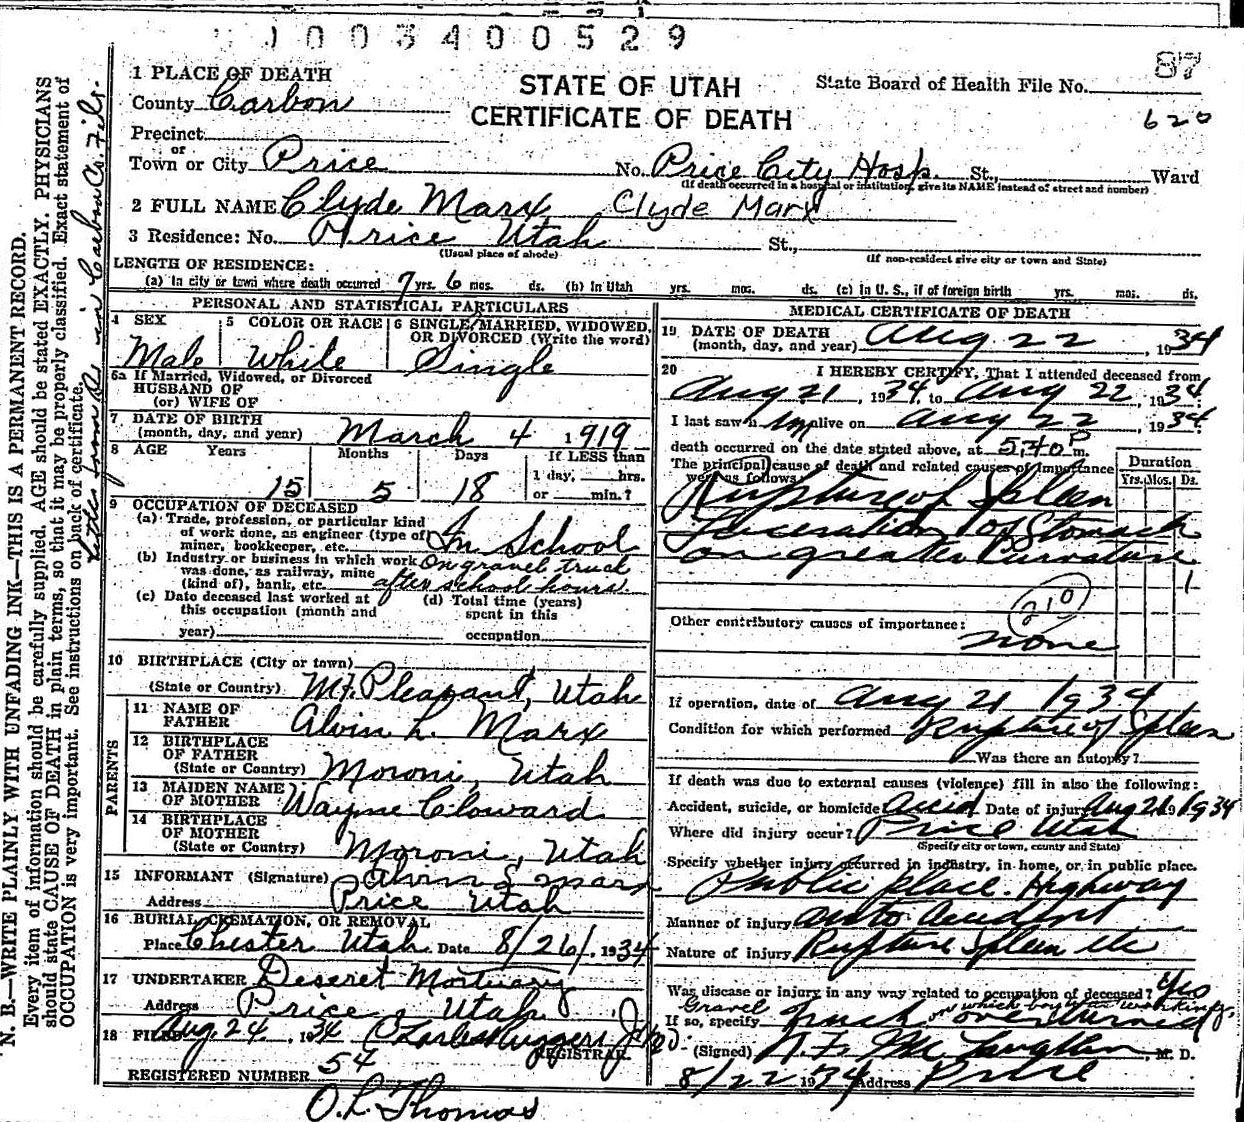 1003400529
87
STATE OF UTAH
CERTIFICATE OF DEATH
State Board of Health File No.
620
1 PLACE OF DEATH
County Carbon
Precinct
or
Town or City Price No. Price City Hosp. St., Ward
(If death occurred in a hospital or institution, give its NAME instead of street and number)
2 FULL NAME Clyde Marx Clyde Marx
3 Residence: No. Price Utah St.,
(Usual place of abode) (If non-resident give city or town and State)
LENGTH OF RESIDENCE:
(a) In city or town where death occurred 7 yrs. 6 mos. ds. (b) In Utah yrs. mos. ds. (c) in U. S., if of foreign birth yrs. mos. ds.
PERSONAL AND STATISTICAL PARTICULARS
4 SEX 5 COLOR OR RACE 6 SINGLE, MARRIED, WIDOWED,
OR DIVORCED (Write the word)
Male White Single
6a If Married, Widowed, or Divorced
HUSBAND OF
(or) WIFE OF
7 DATE OF BIRTH
(month, day, and year) March 4 1919
8 AGE Years Months Days If LESS than
1 day, hrs.
15 5 18 or min.?
9 OCCUPATION OF DECEASED
(a) Trade, profession, or particular kind
of work done, as engineer (type of)
miner, bookkeeper, etc. In School
(b) Industry or business in which work On gravel truck
was done, as railway, mine
(kind of), bank, etc. after school hours.
(c) Date deceased last worked at (d) Total time (years)
this occupation (month and spent in this
year) occupation
10 BIRTHPLACE (City or town)
(State or Country) Mt. Pleasant, Utah
PARENTS
11 NAME OF
FATHER Alvin L. Marx
12 BIRTHPLACE
OF FATHER
(State or Country) Moroni, Utah
13 MAIDEN NAME
OF MOTHER Wayne Cloward
14 BIRTHPLACE
OF MOTHER
(State or Country) Moroni, Utah
15 INFORMANT (Signature) Alvin L Marx
Address Price Utah
16 BURIAL, CREMATION, OR REMOVAL
Place Chester Utah Date 8/26/. 1934
17 UNDERTAKER Deseret Mortuary
Address Price, Utah
18 FILED Aug. 24, 1934 Charles Ruggeri Jr MD
REGISTRAR.
REGISTERED NUMBER 54
O. L. Thomas
MEDICAL CERTIFICATE OF DEATH
19 DATE OF DEATH
(month, day, and year) Aug 22, 1934
20 I HEREBY CERTIFY, That I attended deceased from
Aug 21, 1934, to Aug 22, 1934.
I last saw him alive on Aug 22, 1934
death occurred on the date stated above, at 5:40 P m.
The principal cause of death and related causes of importance
were as follows:
Duration
Yrs. Mos. Ds.
Rupture of Spleen
Laceration of Stomach
on greater Curvature
1
210
Other contributory causes of importance:
none
If operation, date of Aug 21 1934
Condition for which performed Rupture of Spleen
Was there an autopsy?
If death was due to external causes (violence) fill in also the following:
Accident, suicide, or homicide Accid Date of injury Aug 21 1934
Where did injury occur? Price Utah
(Specify city or town, county and State)
Specify whether injury occurred in industry, in home, or in public place.
Public place. Highway
Manner of injury Auto Accident
Nature of injury Rupture Spleen etc
Was disease or injury in any way related to occupation of deceased? Yes
Gravel on which boy was working.
If so, specify truck overturned
(Signed) N. F. McLaughlin, M. D.
8/22 1934 Address Price
N. B.—WRITE PLAINLY, WITH UNFADING INK—THIS IS A PERMANENT RECORD.
Every item of information should be carefully supplied. AGE should be stated EXACTLY. PHYSICIANS
should state CAUSE OF DEATH in plain terms, so that it may be properly classified. Exact statement of
OCCUPATION is very important. See instructions on back of certificate.
Letter from Dr in Carbon Co. File.